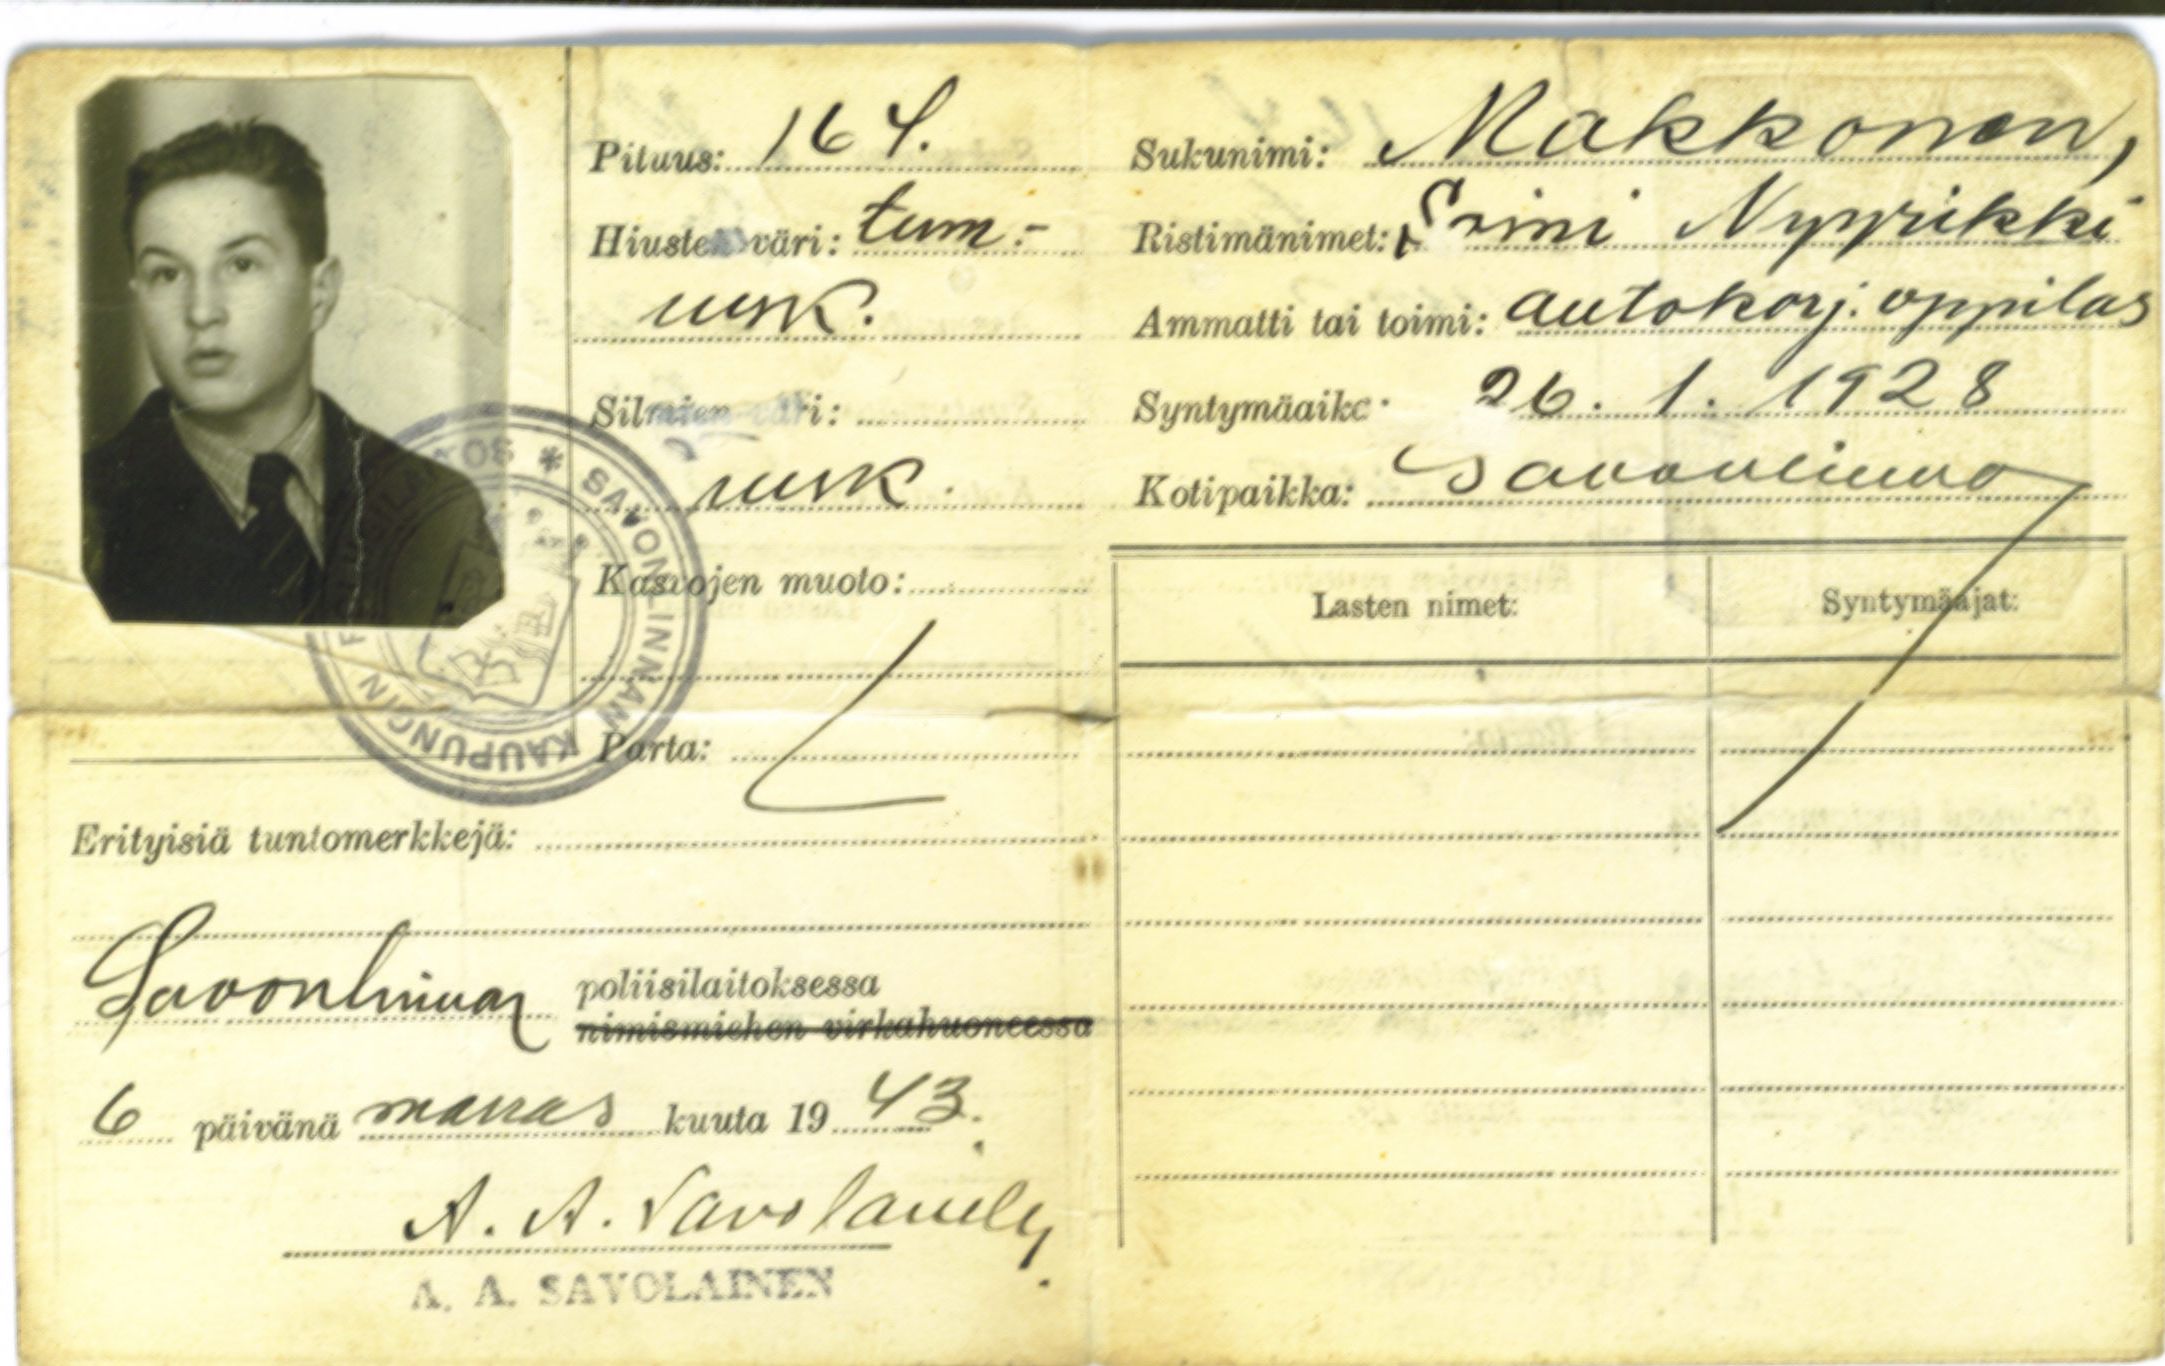 Pituus: 164.
Hiusten väri: tum.-
rusk.
Silmien väri:
rusk.
Kasvojen muoto:
Parta:
Erityisiä tuntomerkkejä:
Savonlinnan poliisilaitoksessa
nimismiehen virkahuoneessa
6 päivänä marras kuuta 19 43.
A. A. Savolainen
A. A. SAVOLAINEN
SAVONLINNAN KAUPUNGIN
Sukunimi: Makkonen,
Ristimänimet: Nyyrikki
Ammatti tai toimi: autokorj. oppilas
Syntymäaika: 26. 1. 1928
Kotipaikka: Savonlinna
Lasten nimet: Syntymäajat: